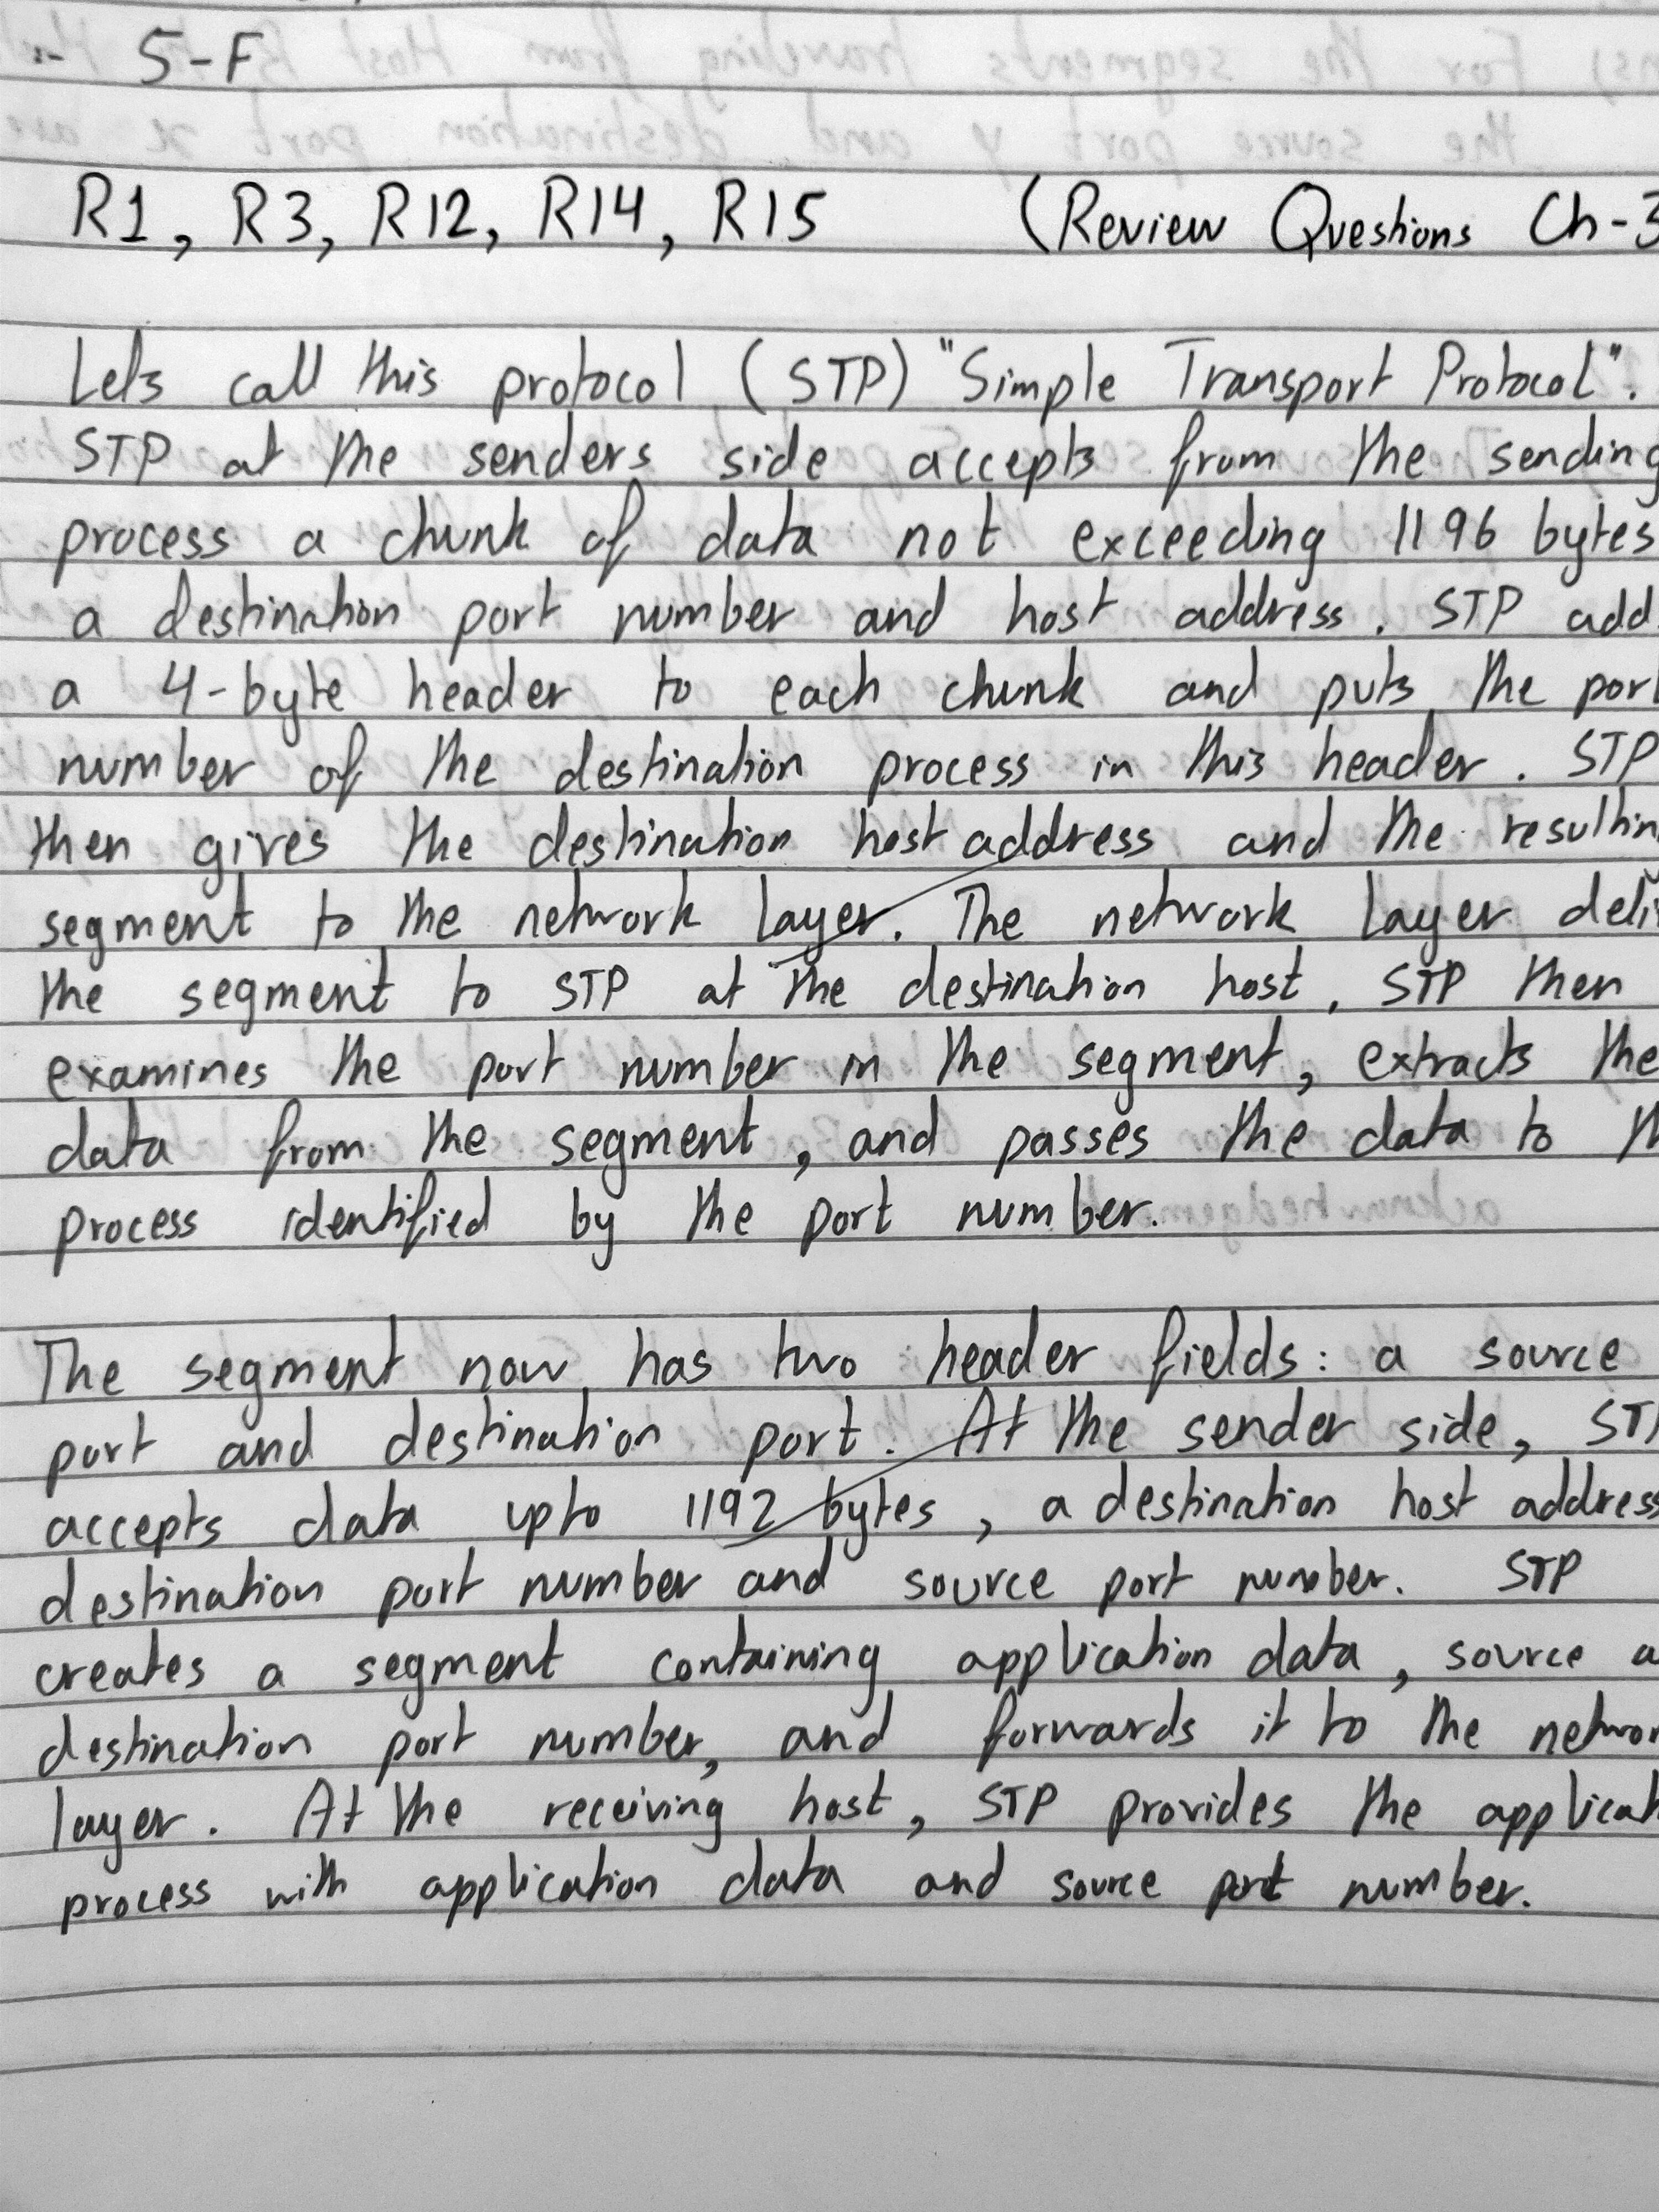 :- 5-F
R1, R3, R12, R14, R15 (Review Questions Ch-3
Lets call this protocol (STP) "Simple Transport Protocol".
STP at the senders side accepts from the sending
process a chunk of data not exceeding 1196 bytes
a destination port number and host address. STP add
a 4-byte header to each chunk and puts the port
number of the destination process in this header. STP
then gives the destination host address and the resultin
segment to the network layer. The network layer deli
the segment to STP at the destination host. STP then
examines the port number in the segment, extracts the
data from the segment, and passes the data to th
process identified by the port number.
The segment now has two header fields: a source
port and destination port. At the sender side, STP
accepts data upto 1192 bytes, a destination host address
destination port number and source port number. STP
creates a segment containing application data, source a
destination port number, and forwards it to the networ
layer. At the receiving host, STP provides the applicat
process with application data and source port number.